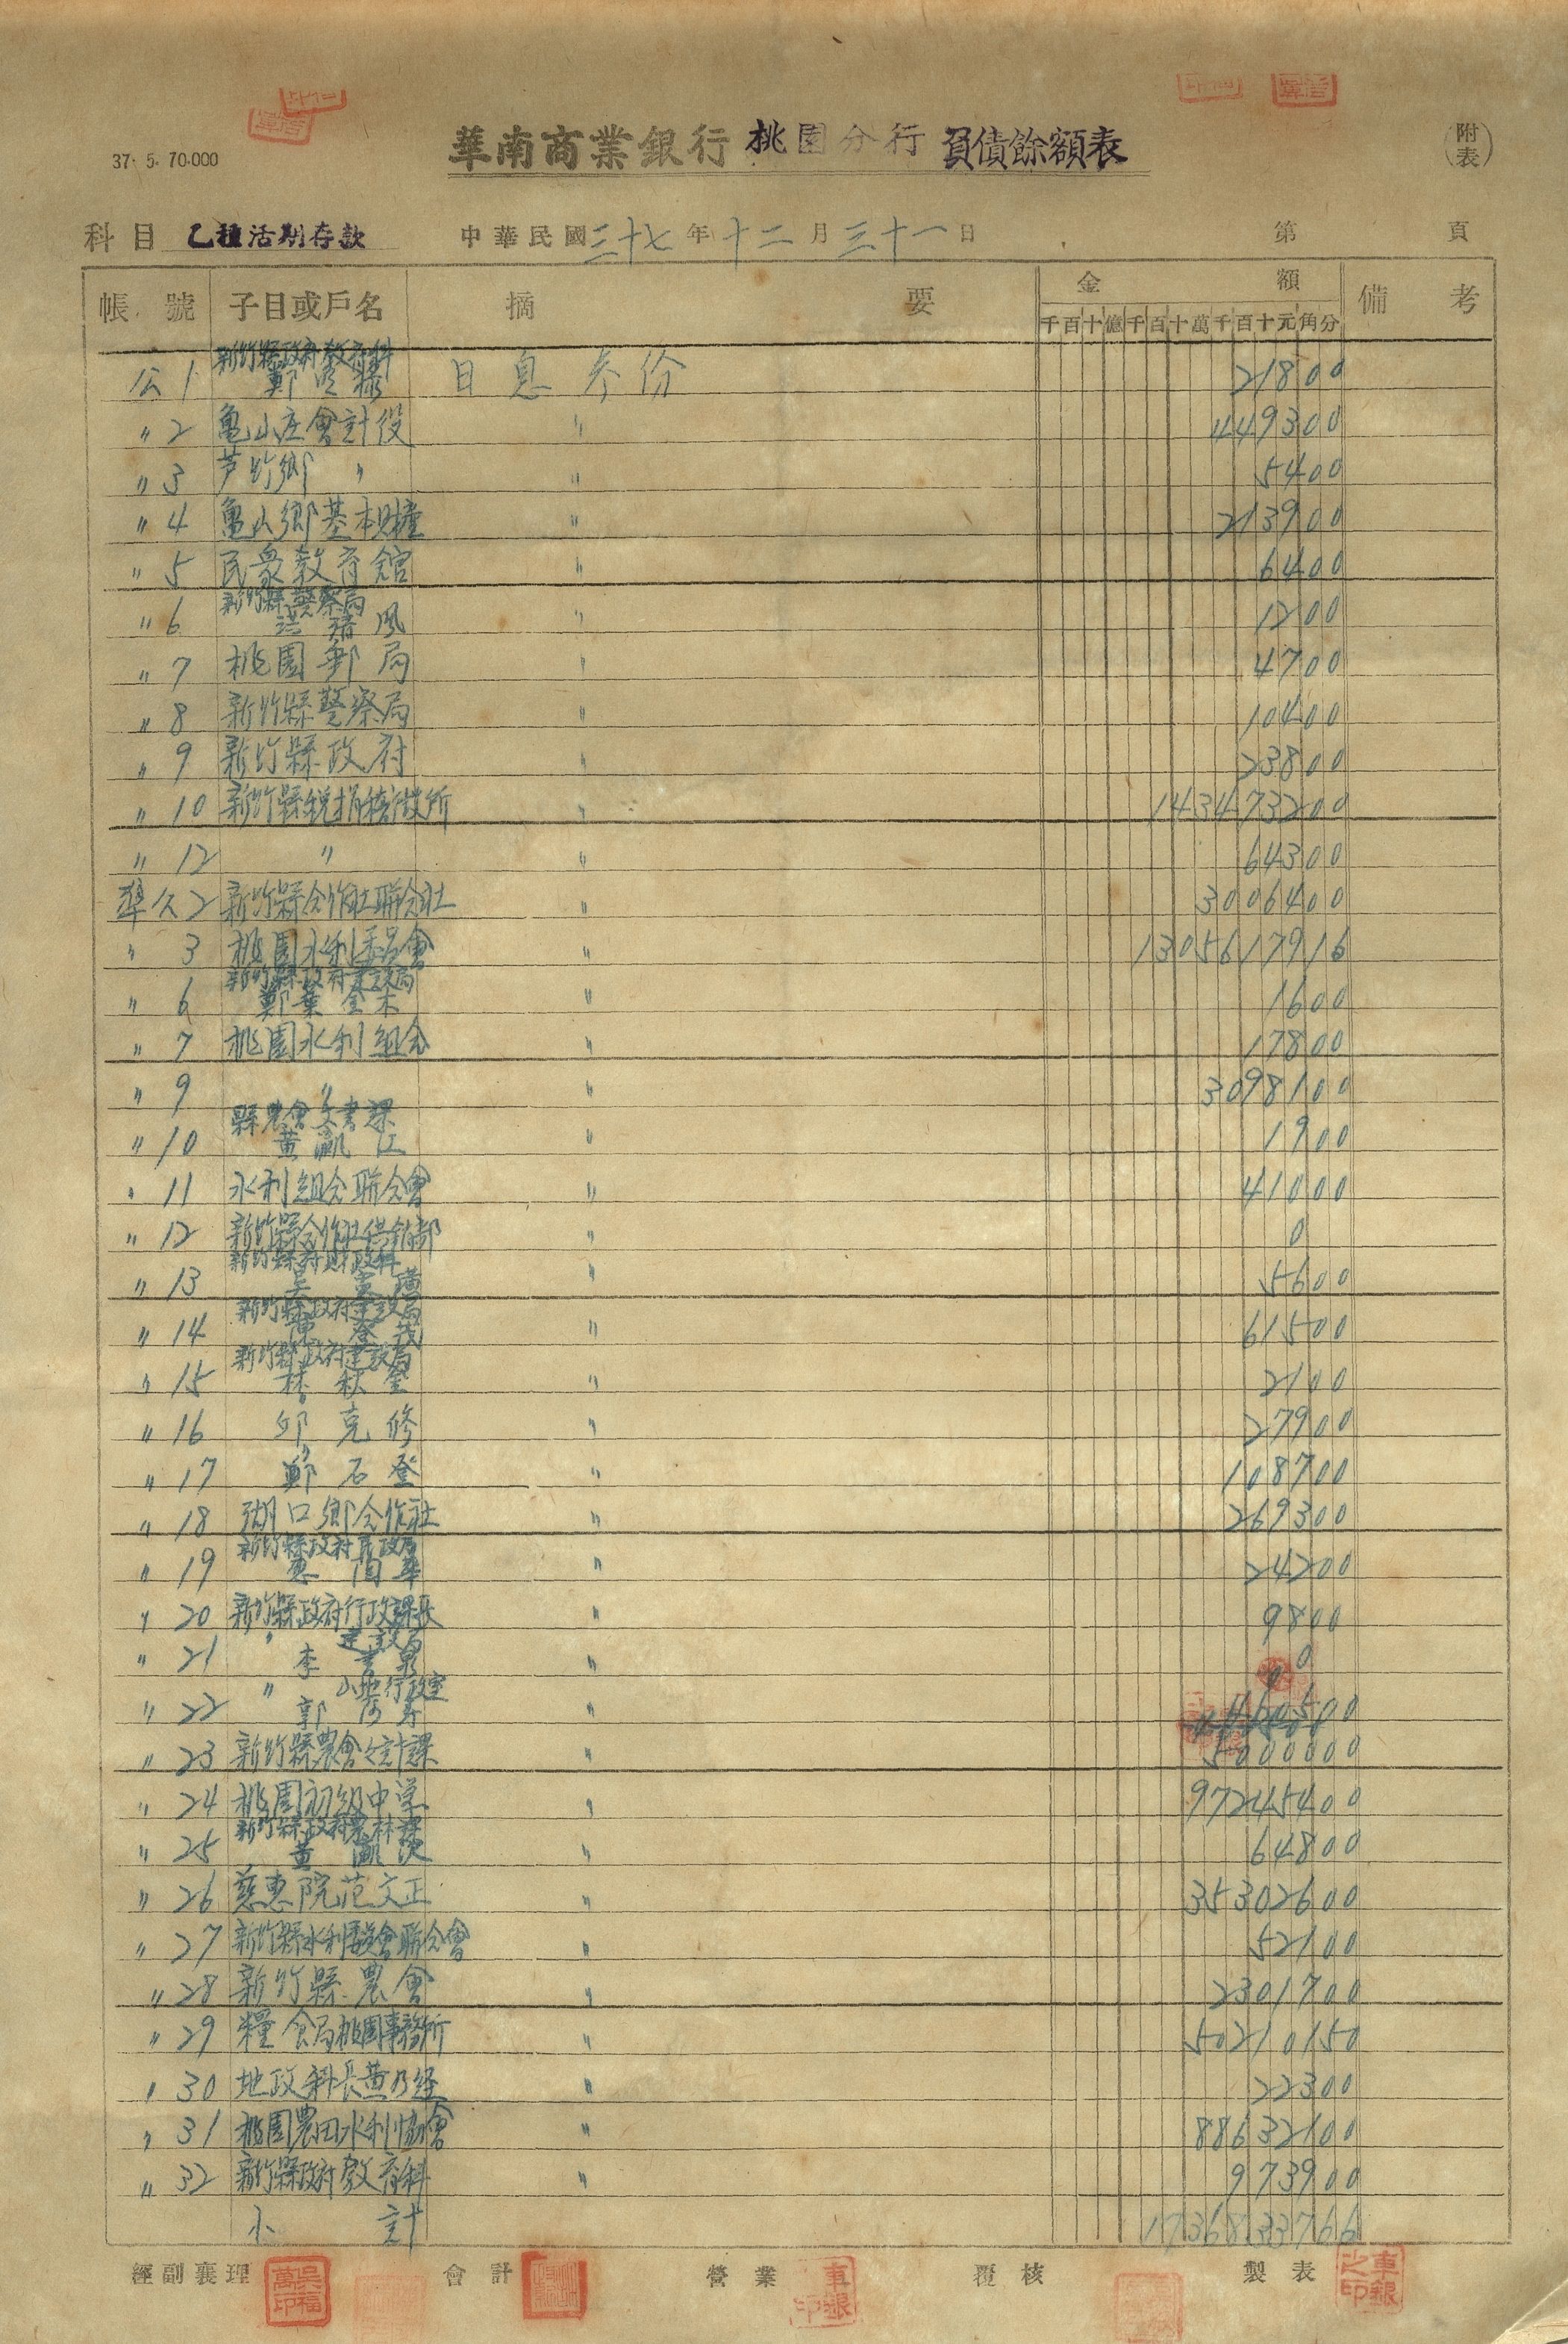 37. 5. 70.000
華南商業銀行 桃園分行 負債餘額表
(附表)
科目 乙種活期存款 中華民國三十七年十二月三十一日 第 頁
帳號 子目或戶名 摘要 金額 備考
千百十億千百十萬千百十元角分
新竹縣政府教育科
公 1 鄭 日息參份 21800
〃 2 亀山庄會計役 〃 449300
〃 3 芦竹鄉 〃 〃 5400
〃 4 亀山鄉基本財 〃 213900
〃 5 民衆教育館 〃 6400
新竹縣警察局
〃 6 洪 風 〃 1200
〃 7 桃園郵局 〃 4700
〃 8 新竹縣警察局 〃 10400
〃 9 新竹縣政府 〃 23800
〃 10 新竹縣稅捐稽徵所 〃 143473200
〃 12 〃 〃 64300
準公 2 新竹縣合作社聯合社 〃 3006400
〃 3 桃園水利委員會 〃 1305617916
新竹縣政府建設局
〃 6 鄭葉金木 〃 1600
〃 7 桃園水利組合 〃 17800
〃 9 〃 〃 3098100
縣農會文書課
〃 10 黃瀛江 〃 1900
〃 11 水利組合聯合會 〃 41000
〃 12 新竹縣合作社供銷部 〃 0
新竹縣府財政科
〃 13 吳 〃 5600
新竹縣政府建設局
〃 14 陳登茂 〃 61500
新竹縣政府建設局
〃 15 林秋 〃 2100
〃
〃 16 邱克修 〃 27900
〃
〃 17 鄭石登 〃 108700
〃 18 湖口鄉合作社 〃 269300
新竹縣政府民政局
〃 19 華 〃 24200
〃 20 新竹縣政府行政課長 〃 9800
〃 建設局
〃 21 李 泉 〃 0
〃 山地行政室
〃 22 郭
〃 23 新竹縣農會會計課 〃 5000000
〃 24 桃園初級中學 〃 97245400
新竹縣政府農林課
〃 25 黃 〃 64800
〃 26 慈惠院范文正 〃 35302600
〃 27 新竹縣水利委員會聯合會 〃 52100
〃 28 新竹縣農會 〃 2301700
〃 29 糧食局桃園事務所 〃 50210150
〃 30 地政科長黃乃經 〃 22300
〃 31 桃園農田水利協會 〃 88632100
〃 32 新竹縣政府教育科 〃 973900
小計 1736833766
經副襄理 會計 營業 覆核 製表